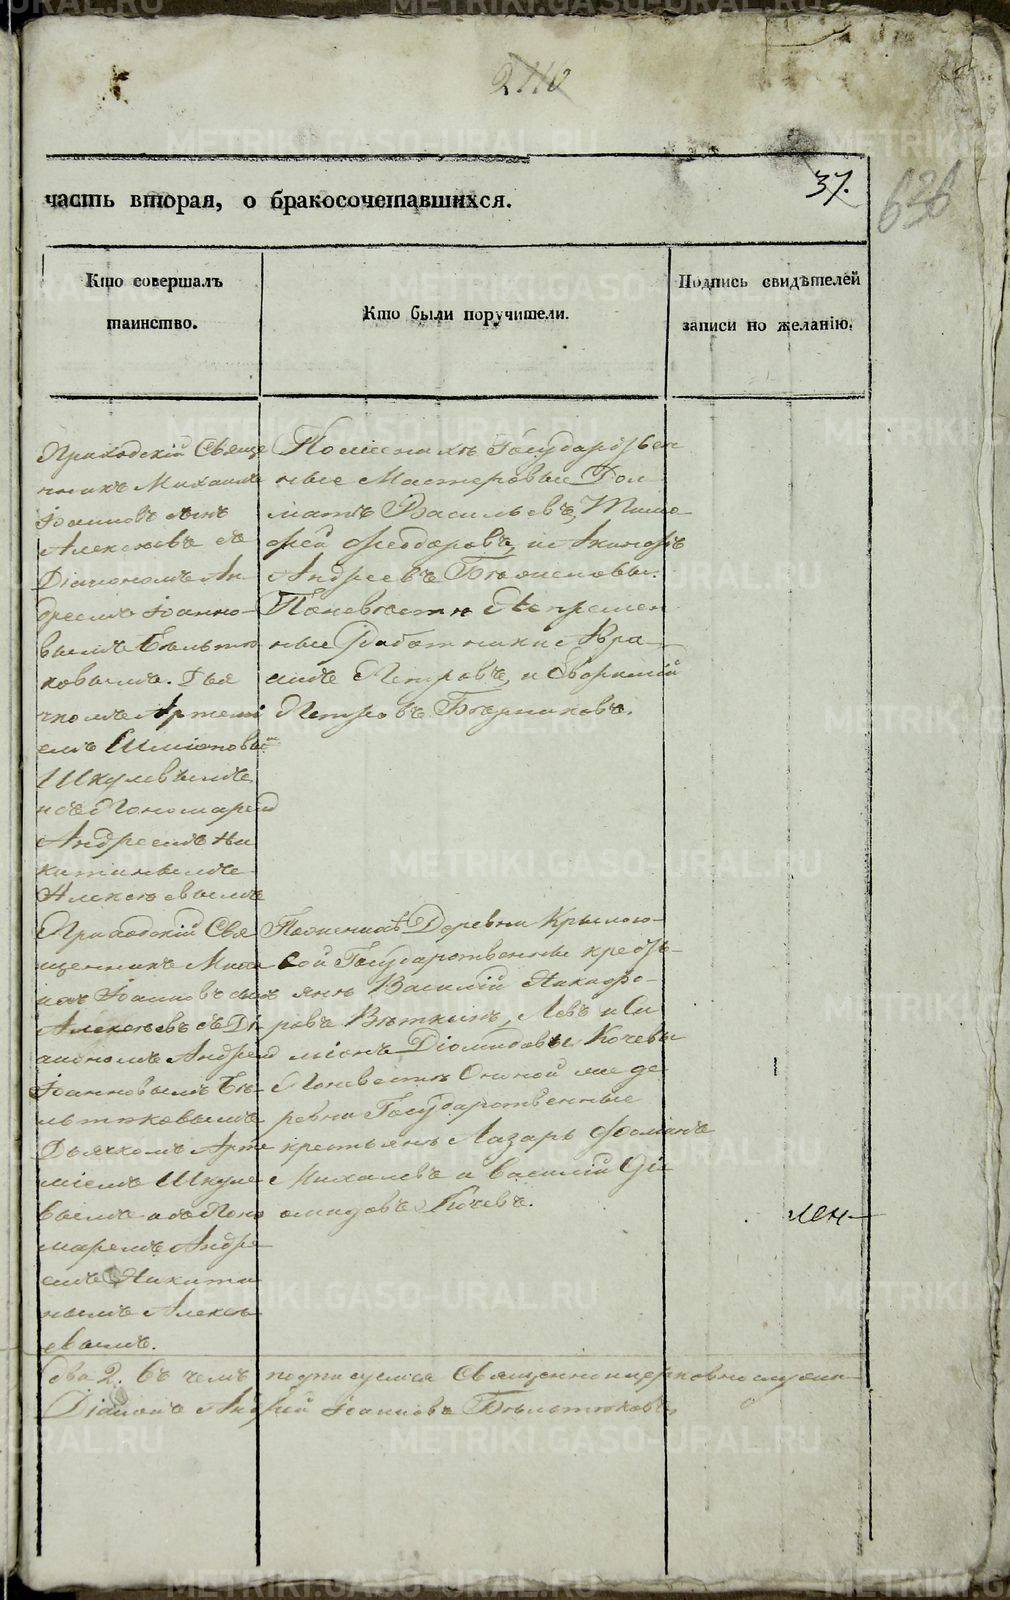 METRIKI.GASO-URAL.RU
2110
часть вторая, о бракосочетавшихся.
37.
636
Кто совершалъ
таинство.
Кто были поручители.
Подпись свидѣтелей
записи по желанію.
Приходскій Свяще
нникъ Михаилъ
Іоанновъ сынъ
Алексѣевъ съ
Діакономъ Ан
дреемъ Іоанно-
вымъ Бѣльтю
ковымъ. Дья
чкомъ Артемі
емъ Симіоновы
Шкулевымъ
и съ Пономаремъ
Андреемъ Ни
китинымъ
Алексѣевымъ
По женихѣ Государствен
ные Мастеровые Дол
матъ Васильевъ, Тимо-
фей Феодоровъ, и Акинфъ
Андреевъ
По невѣстѣ Непремен
ные Работники
Петровъ, и
Петровъ
Приходскій Свя
щенникъ Миха
илъ Іоанновъ сынъ
Алексѣевъ съ Ді
акономъ Андреем
Іоанновымъ Бѣ-
льтюковымъ
Дьячкомъ Арте
міемъ Шкуле
вымъ и съ Поно
маремъ Андре
емъ Никити
нымъ Алексѣ
евымъ.
По женихѣ Деревни
Государственные крестъ-
янъ Василій Никифо-
ровъ Вяткинъ, Левъ и Си
міонъ Діомидовы Кочевы
По невѣстѣ Оной же де
ревни Государственные
крестьянъ Лазарь Фоминъ
Михалевъ и Василій Ді
омидовъ Кочевъ.
лен-
два 2. въ чемъ подписуемся Священноцерковнослужи-
Діаконъ Андрей Іоанновъ Бѣльтюковъ